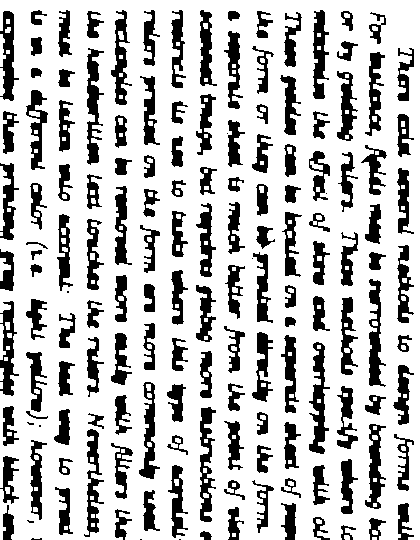 There exist several methods to design forms
For instance, fields may be surrounded by bounding bo
or by guiding rulers. These methods specify where to
minimize the effect of skew and overlapping with oth
These guides can be located on a separate of
the form or they can be printed directly on the form.
a separate sheet is much better from the point of
scanned image, but requires giving more instructions
restricts its use to tasks where this type of acquisition
rulers printed on the form are more commonly used
rectangles can be removed more easily with filters
the handwritten text touches the rulers. Nevertheless
must be taken into account: The best way to print
is in a different color (i.e. light yellow); however,
expensive than printing gray rectangles with black-an